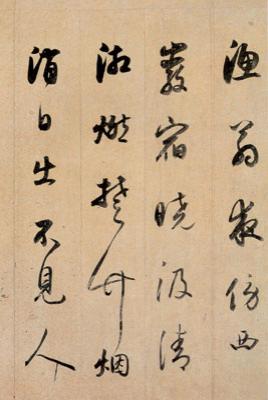 漁翁夜傍西
巖宿曉汲清
湘燃楚竹烟
消日出不見人